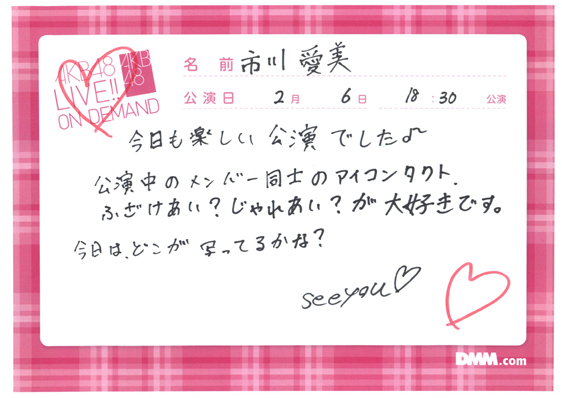 AKB48
LIVE!!
ON DEMAND
AKB
48
名前 市川愛美
公演日 2月 6日 18:30 公演
今日も楽しい公演でした♪
公演中のメンバー同士のアイコンタクト、
ふざけあい?じゃれあい?が大好きです。
今日は、どこが写ってるかな?
see you♡
DMM.com